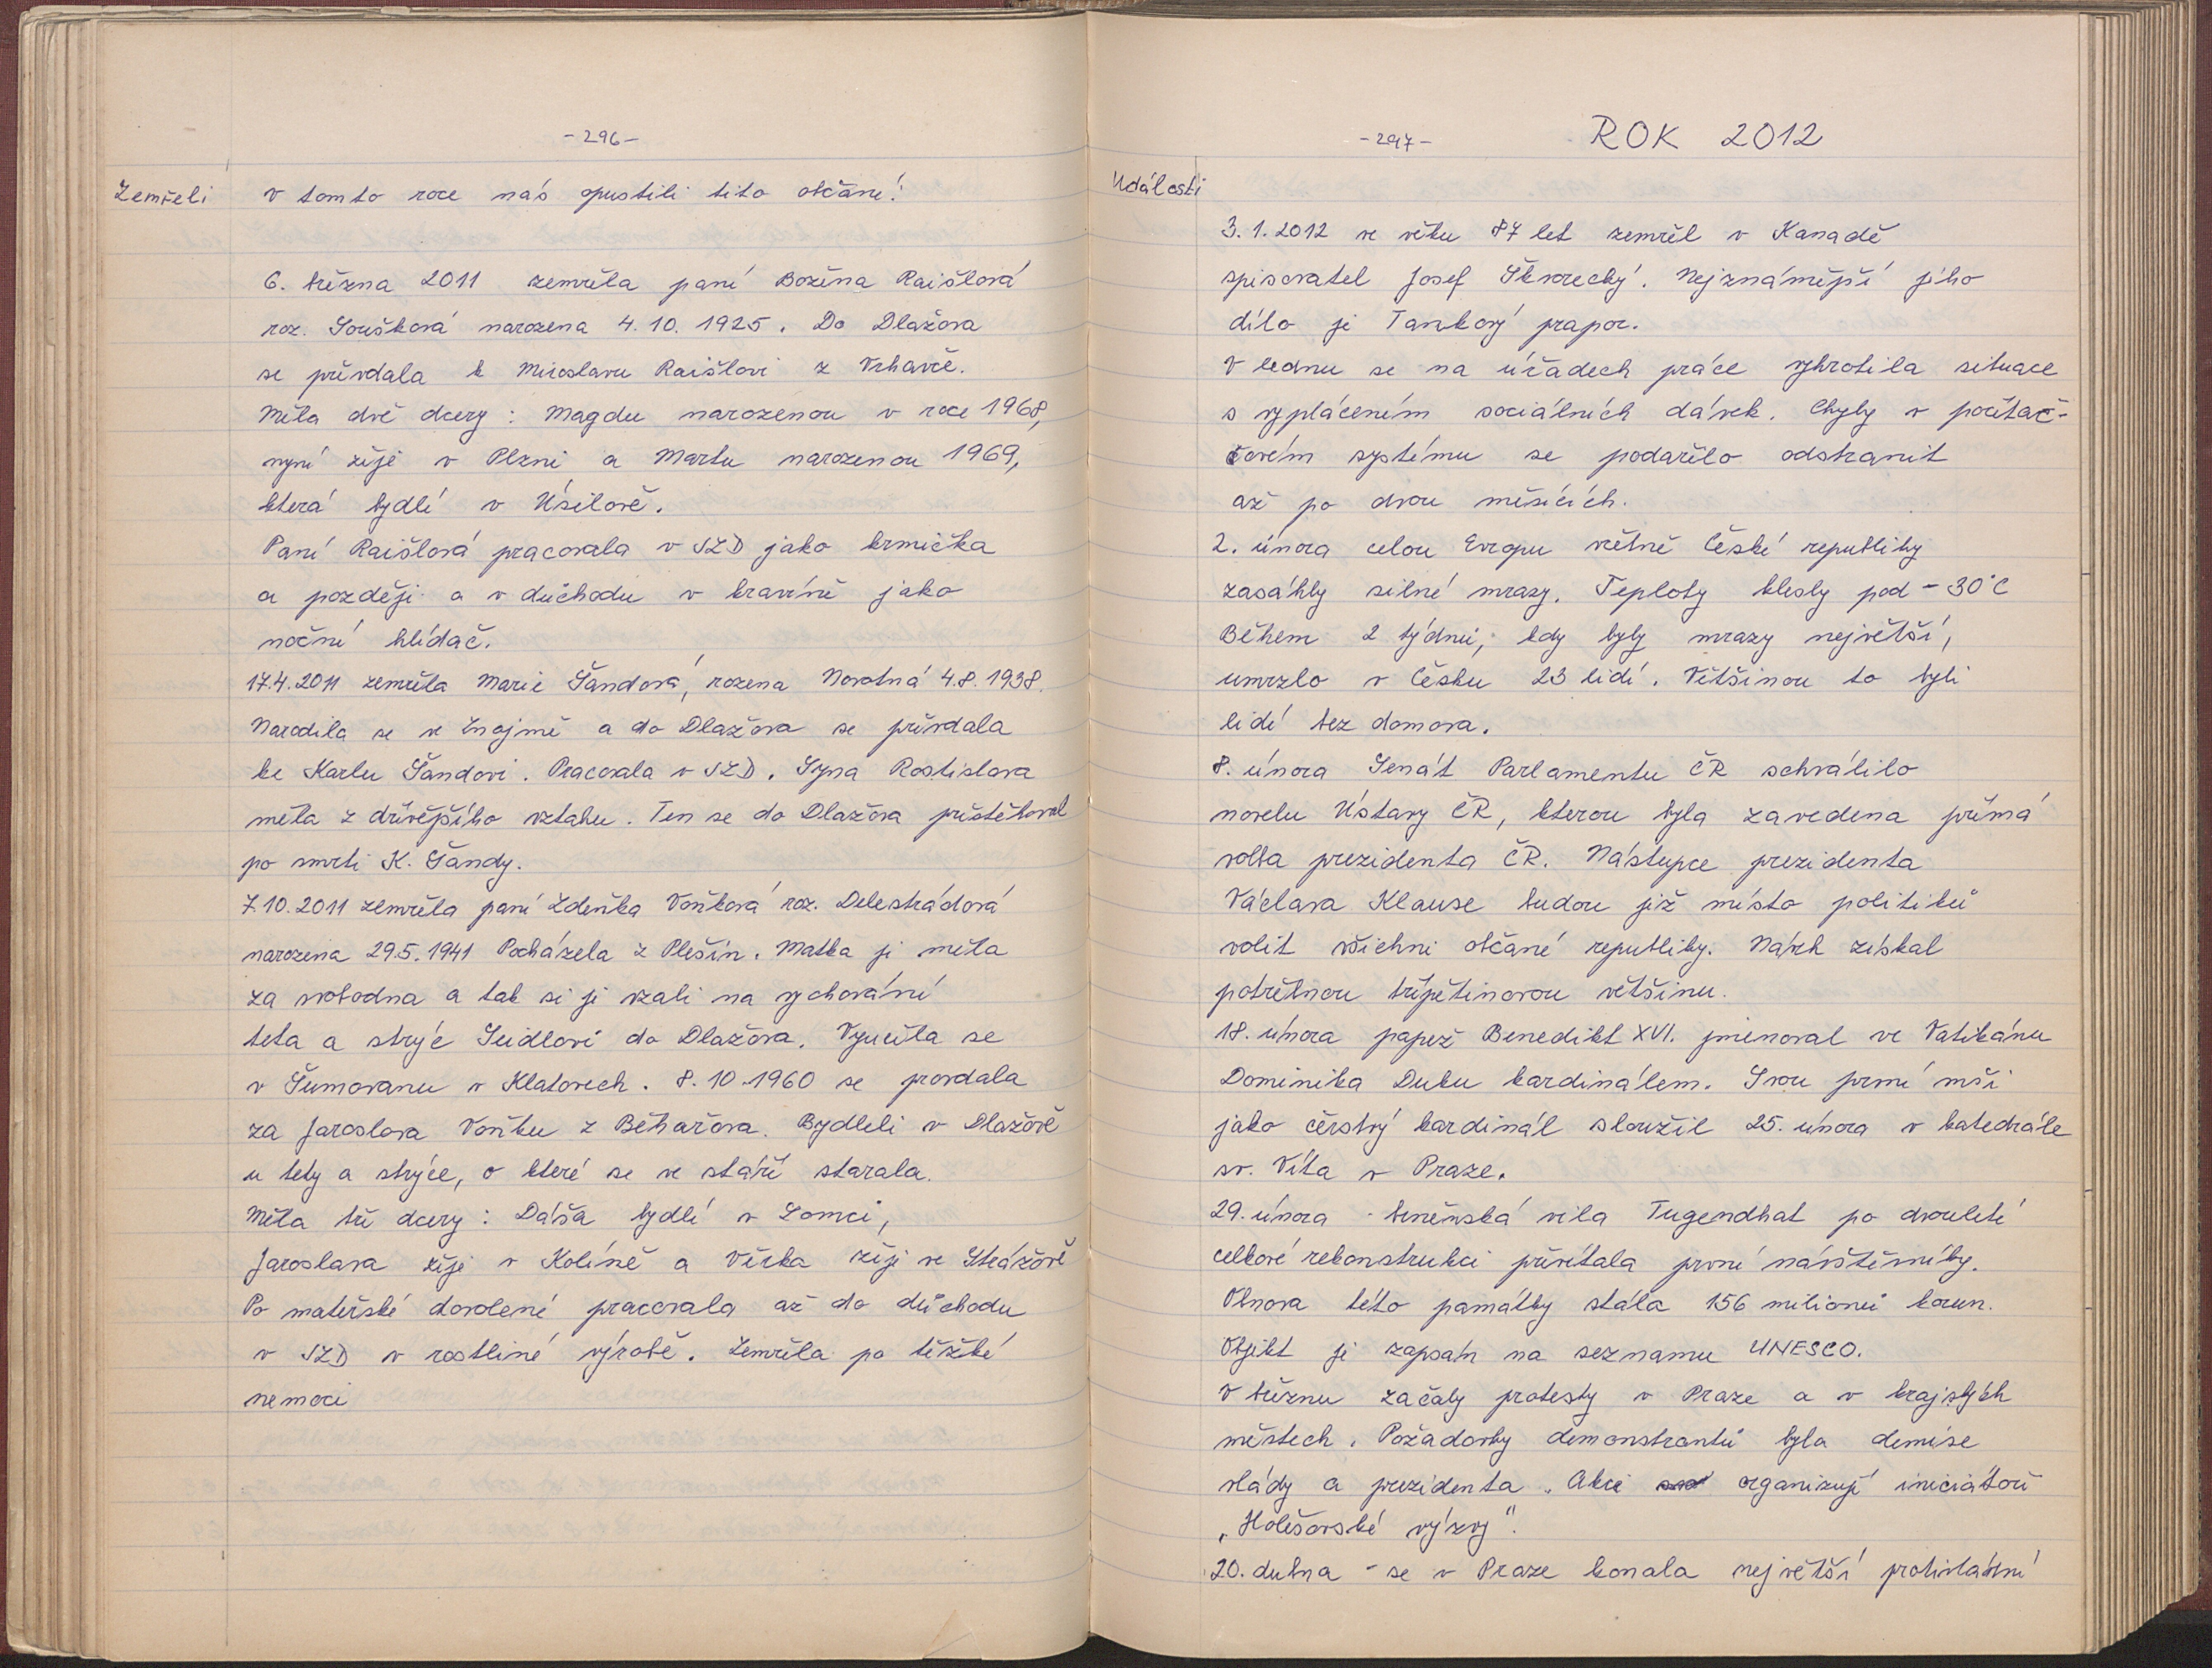 -296-
Zemřeli
V tomto roce nás opustili tito občané:
6. března 2011 zemřela paní Božena Raišlová
roz. Soušková narozena 4.10. 1925. Do Dlažova
se přivdala k Miroslavu Raišlovi z Vrhavče.
Měla dvě dcery: Magdu narozenou v roce 1968,
nyní žije v Plzni a Martu narozenou 1969,
která bydlí v Úsilově.
Paní Raišlová pracovala v JZD jako krmička
a později a v důchodu v kravíně jako
noční hlídač.
17.4.2011 zemřela Marie Šandová, rozena Novotná 4.8.1938.
Narodila se ve Znojmě a do Dlažova se přivdala
ke Karlu Šandovi. Pracovala v JZD. Syna Rostislava
měla z dřívějšího vztahu. Ten se do Dlažova přistěhoval
po smrti K. Šandy.
7.10.2011 zemřela paní Zdeňka Voňková roz. Delestrádová
narozena 29.5.1941 Pocházela z Plešin. Matka ji měla
za svobodna a tak si ji vzali na vychování
teta a strýc Seidlovi do Dlažova. Vyučila se
v Šumavanu v Klatovech. 8.10.1960 se provdala
za Jaroslava Voňku z Běhařova. Bydleli v Dlažově
u tety a strýce, o které se ve stáří starala.
Měla tři dcery: Dáša bydlí v Lomci,
Jaroslava žije v Kolíně a Věrka žije ve Strážově
Po mateřské dovolené pracovala až do důchodu
v JZD v rostliné výrobě. Zemřela po těžké
nemoci
-297- ROK 2012
Události
3.1.2012 ve věku 87 let zemřel v Kanadě
spisovatel Josef Škvorecký. Nejznámější jeho
dílo je Tankový prapor.
V lednu se na úřadech práce vyhrotila situace
s vyplácením sociálních dávek. Chyby v počítač-
ovém systému se podařilo odstranit
až po dvou měsících.
2. února celou Evropu včetně České republiky
zasáhly silné mrazy. Teploty klesly pod -30°C
Během 2 týdnů, kdy byly mrazy největší,
umrzlo v Česku 23 lidí. Většinou to byli
lidé bez domova.
8. února Senát Parlamentu ČR schválilo
novelu Ústavy ČR, kterou byla zavedena přímá
volba prezidenta ČR. Nástupce prezidenta
Václava Klause budou již místo politiků
volit všichni občané republiky. Návrh získal
potřebnou třípětinovou většinu.
18. února papež Benedikt XVI. jmenoval ve Vatikánu
Dominika Duku kardinálem. Svou první mši
jako čerstvý kardinál sloužil 25. února v katedrále
sv. Víta v Praze.
29. února - brněnská vila Tugendhat po dvouleté
celkové rekonstrukci přivítala první návštěvníky.
Obnova této památky stála 156 milionů korun.
Objekt je zapsán na seznamu UNESCO.
V březnu začaly protesty v Praze a v krajských
městech. Požadavky demonstrantů byla demise
vlády a prezidenta. Akci organizují iniciátoři
„Holešovské výzvy".
20. dubna - se v Praze konala největší protivládní